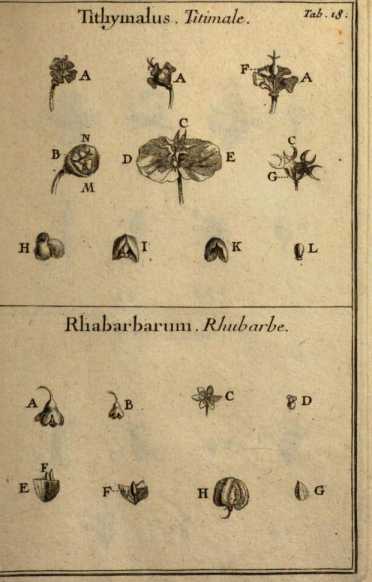 Tithymalus. Titimale. Tab. 18.
A A F A
B N M D C E C G
H I K L
Rhabarbarum. Rhubarbe.
A B C D
E F F H G